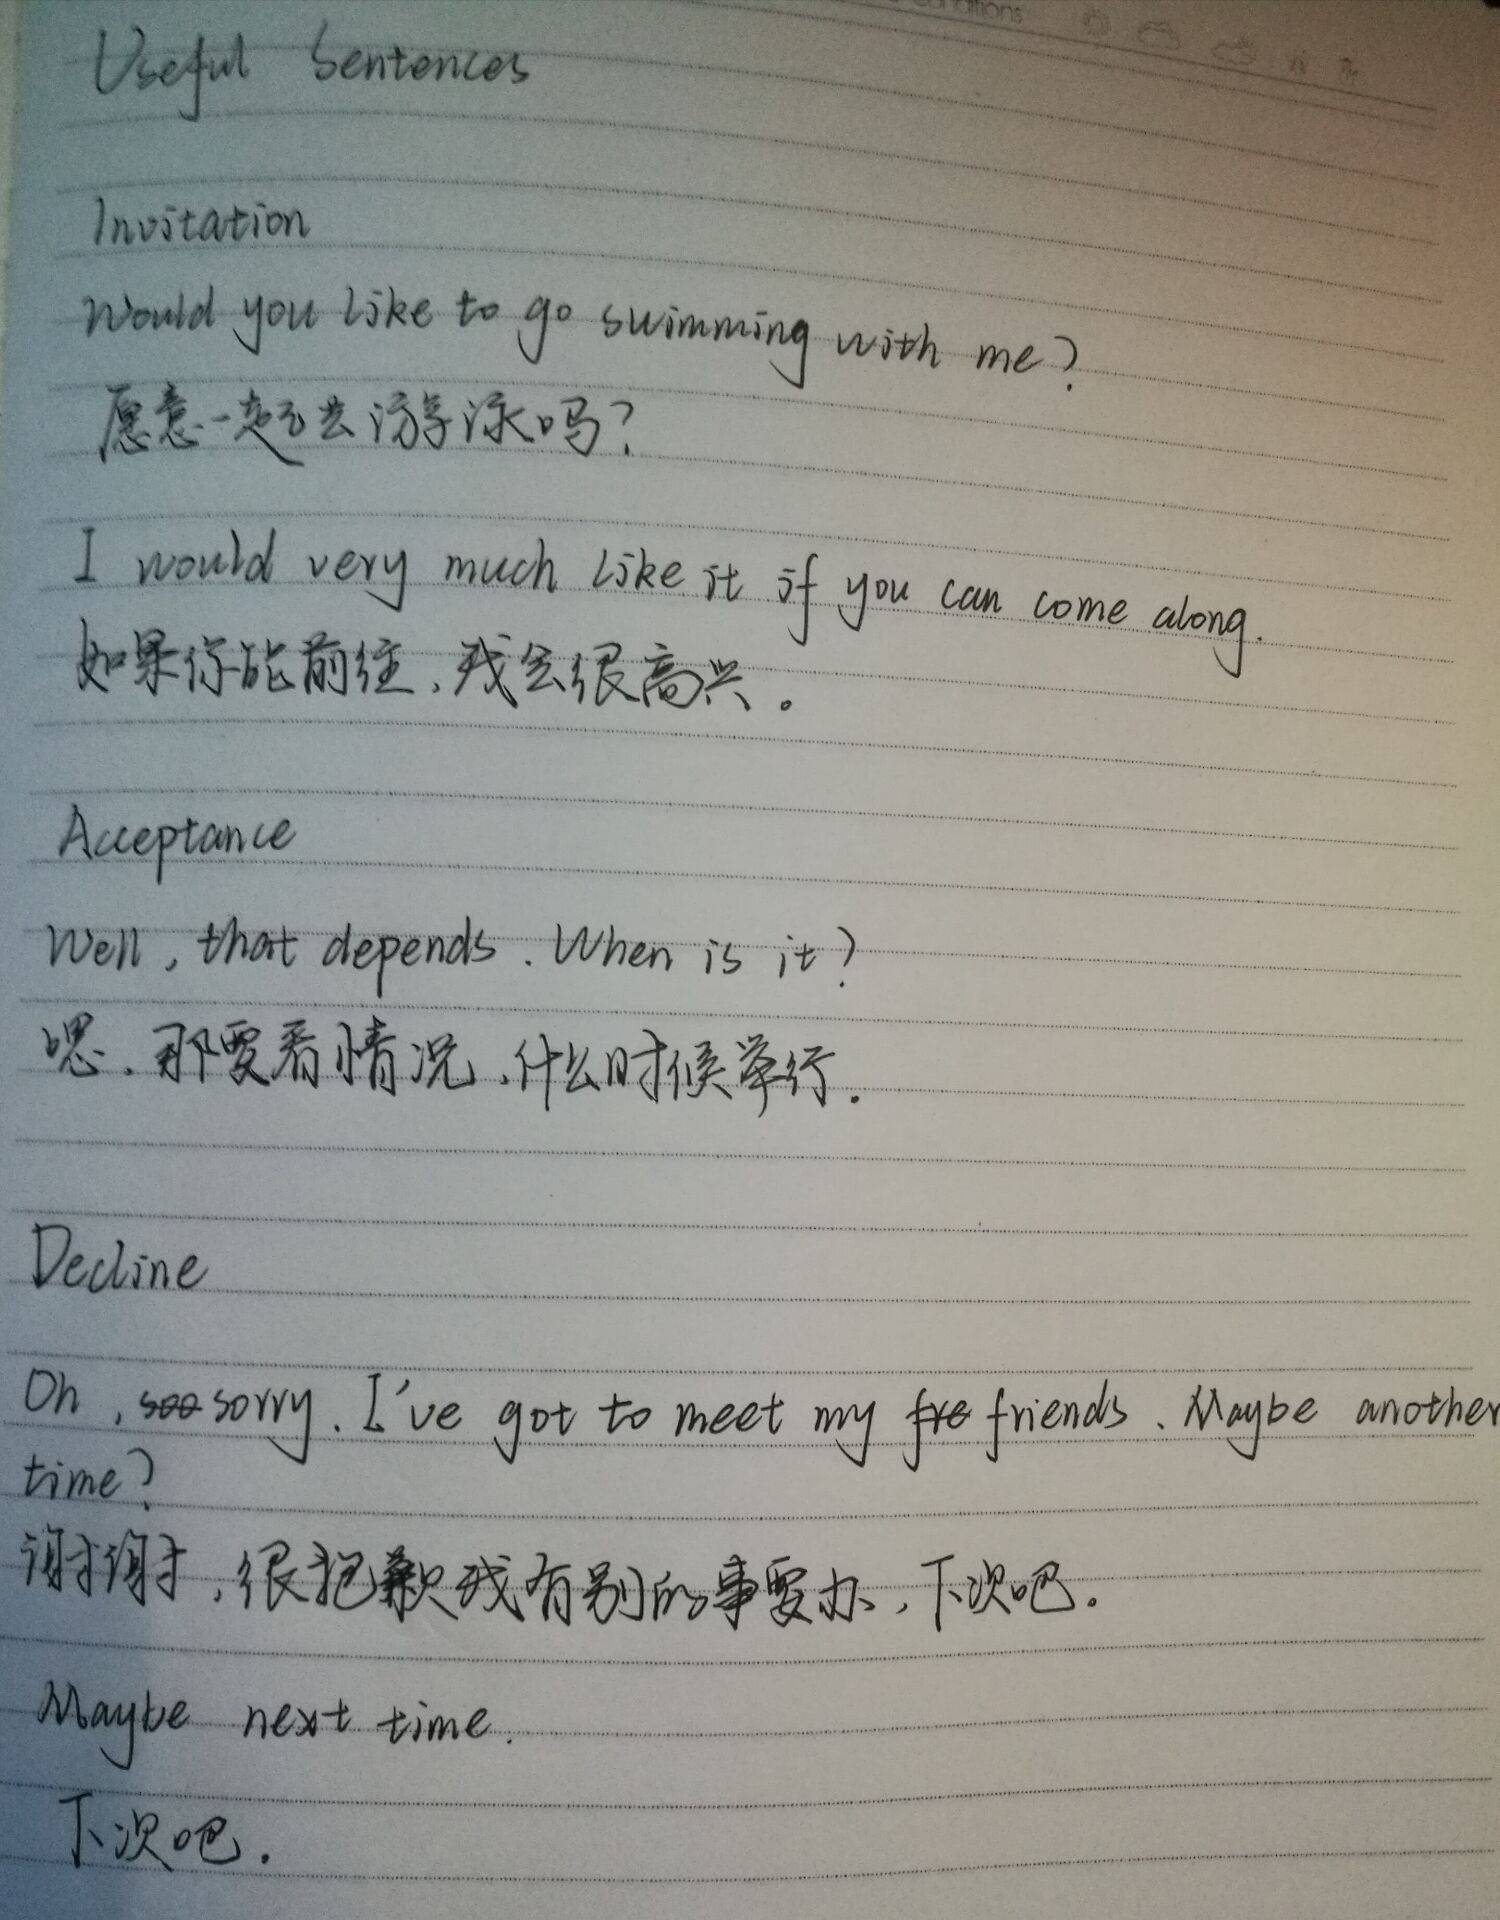 Conditions
Useful Sentences
Invitation
Would you like to go swimming with me?
愿意一起去游泳吗?
I would very much like it if you can come along.
如果你能前往,我会很高兴。
Acceptance
Well, that depends. When is it?
嗯,那要看情况,什么时候举行.
Decline
Oh, soo sorry. I've got to meet my fre friends. Maybe another
time?
谢谢,很抱歉我有别的事要办,下次吧.
Maybe next time.
下次吧.